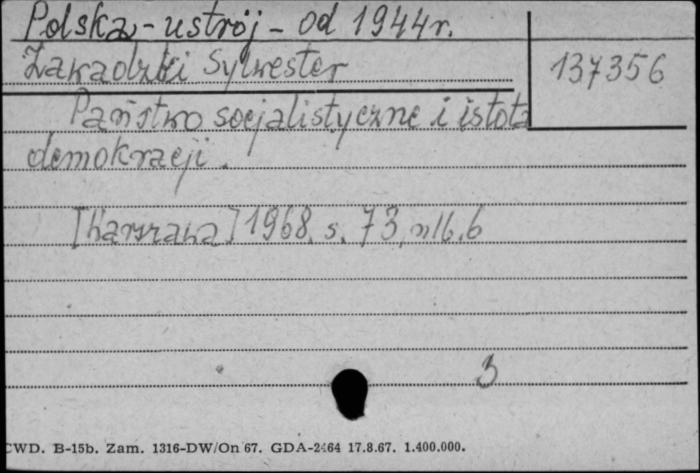 Polska - ustrój - od 1944r.
Zawadzki Sylwester
137356
Państwo socjalistyczne i istota
demokracji.
[Warszawa] 1968. s. 73, nlb. 6
3
CWD. B-15b. Zam. 1316-DW/On 67. GDA-2464 17.8.67. 1.400.000.